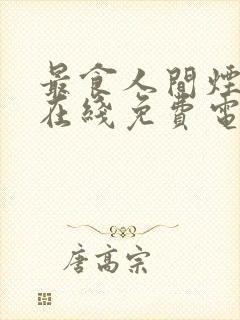 最食人間煙
在綫免費電
唐高宗